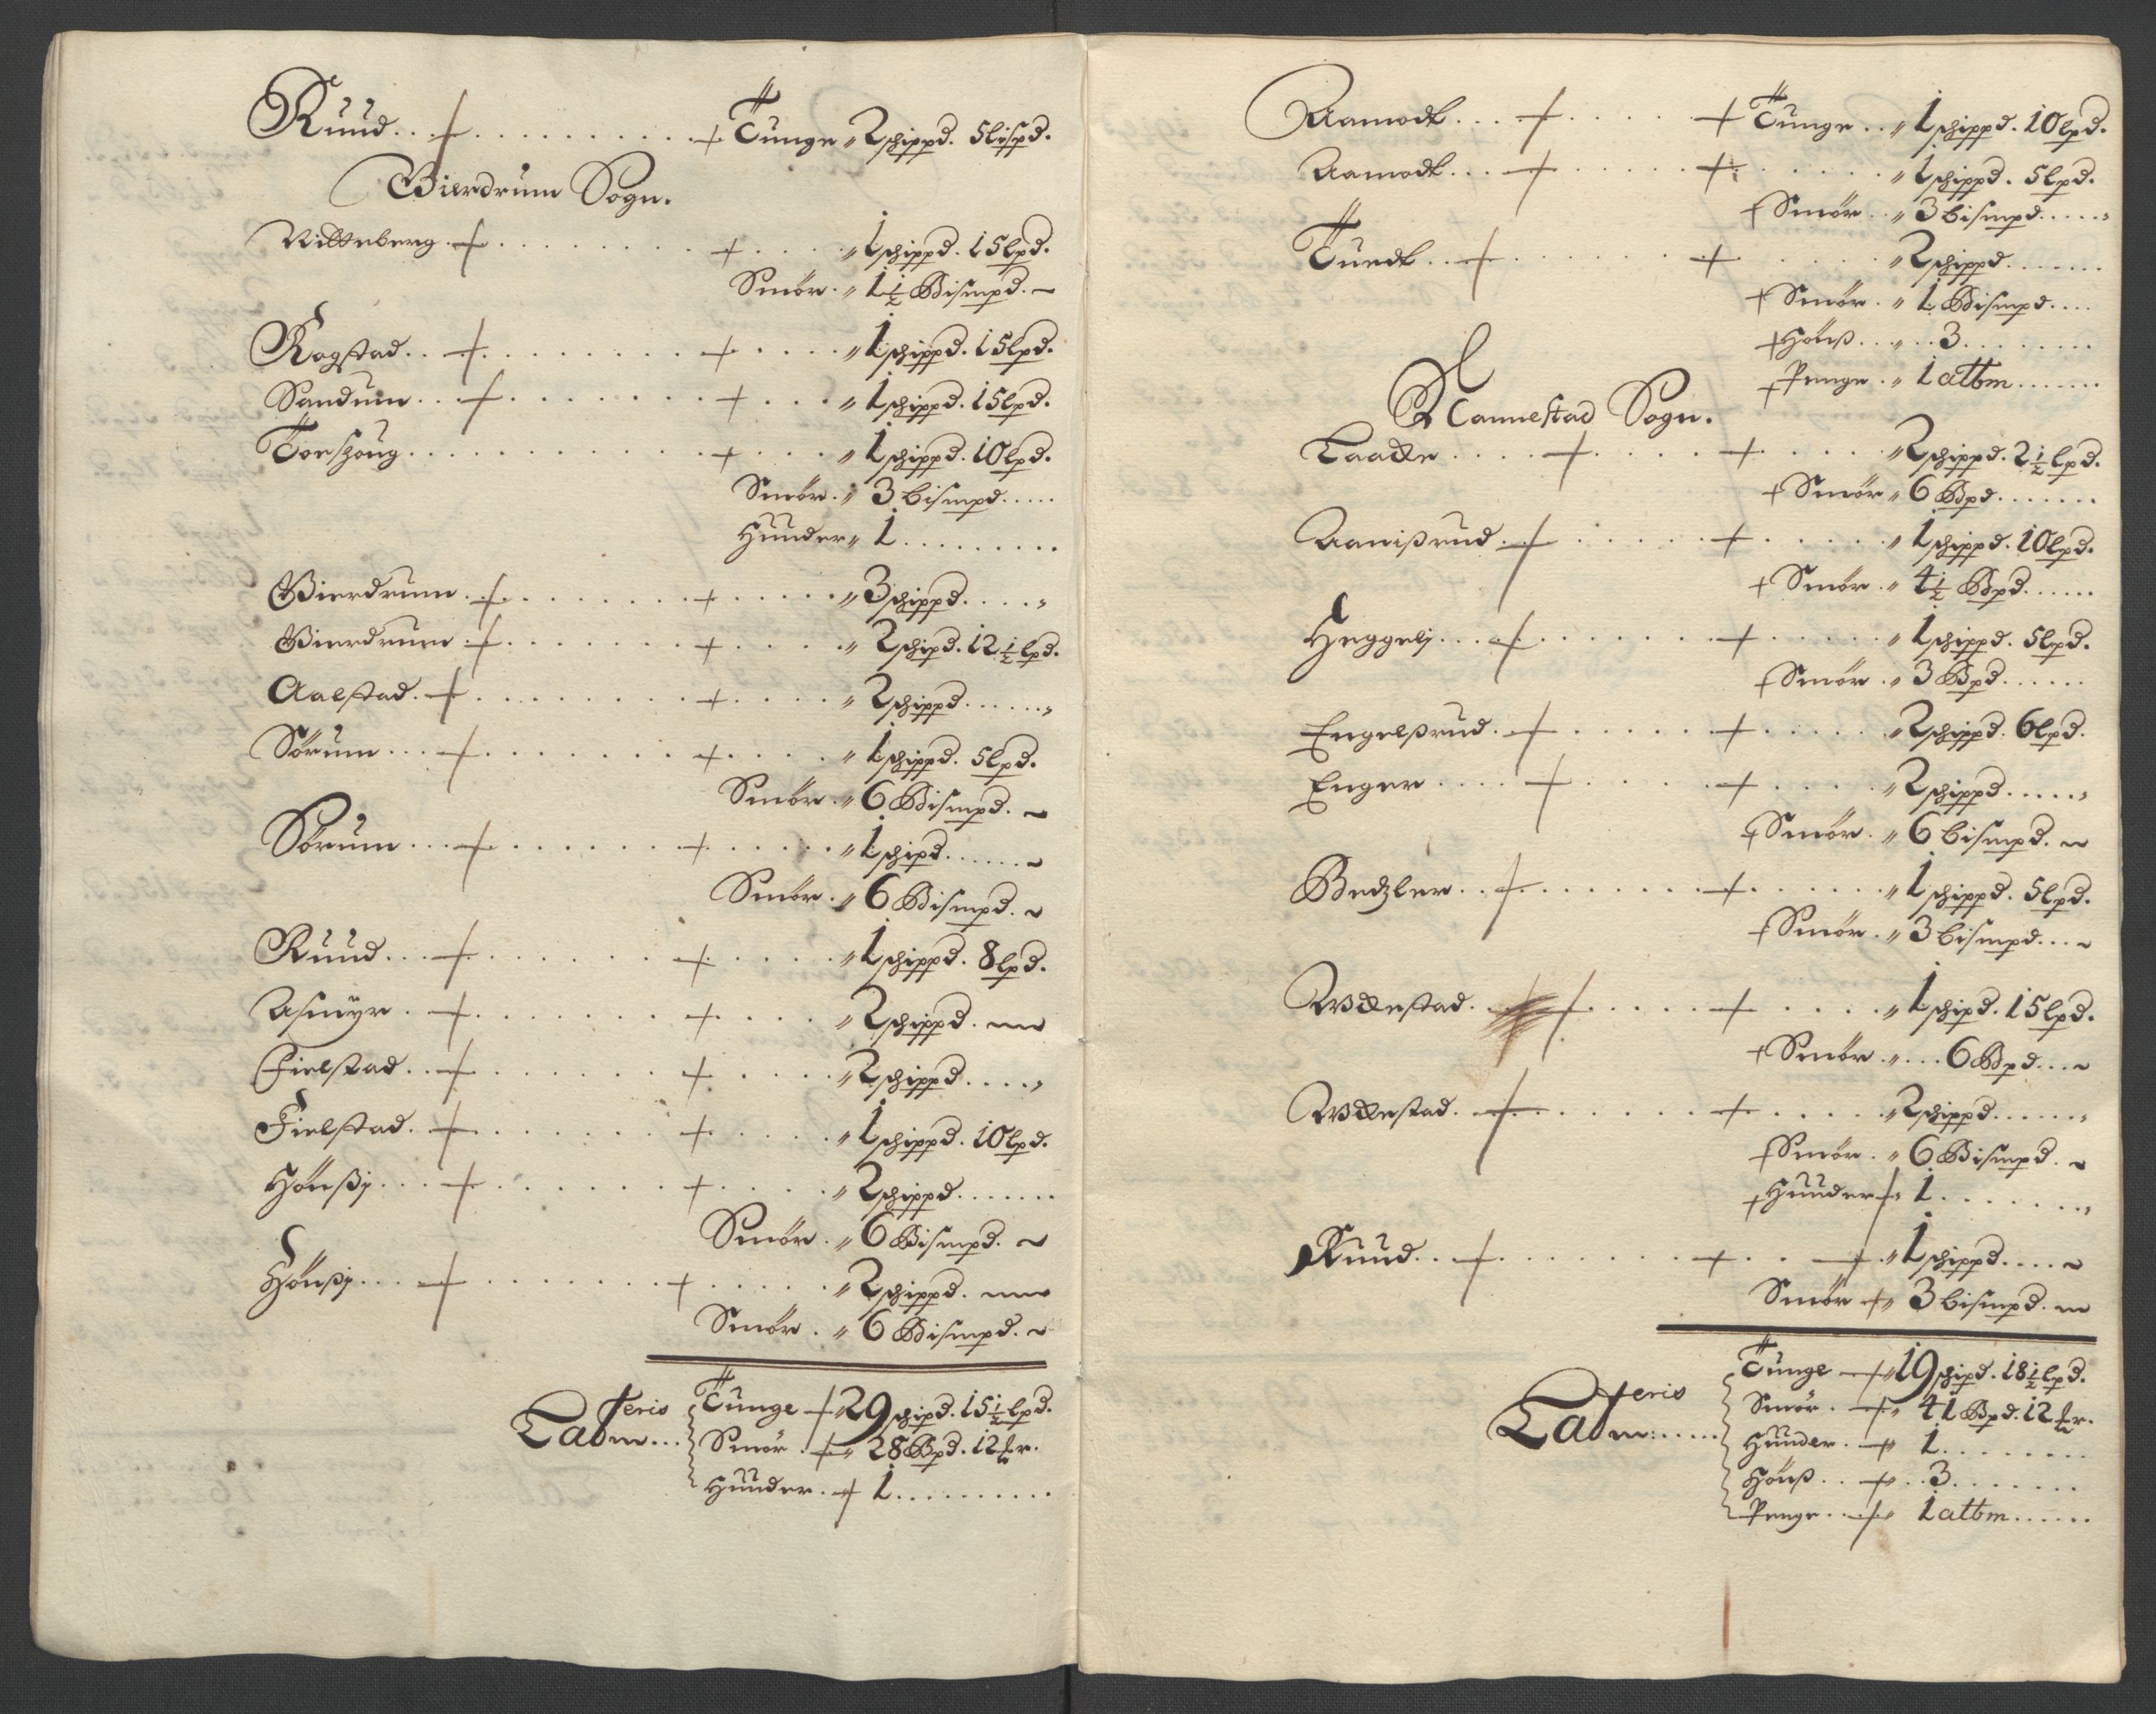 Ruud . . + . . . . . . . . . . + Tunge „ 2 schippd. 5 lispd.
Bierdrum Sogn.
Ritteberg . + . . . . . . . . + . . . . „ 1 schippd. 15 lpd.
Smör . „ 1½ Bismpd. ~
Rogstad . . + . . . . . . . . + . . . . „ 1 schippd. 15 lpd.
Sandum . . + . . . . . . . . + . . . „ 1 schippd. 15 lpd.
Torshoug . . . . . . . . . . + . . . „ 1 schippd. 10 lpd.
Smör . „ 3 bismpd. . . . .
Huuder „ 1 . . . . . . . . .
Bierdrum . + . . . . . . . . + . . . . . „ 3 schippd. . . . „
Bierdrum . + . . . . . . . . + . . . . „ 2 schipd. 12½ lpd.
Aalstad . + . . . . . . . . + . . . . „ 2 schippd. . . . . . „
Sörum . . . + . . . . . . . . + . . . . „ 1 schippd. 5 lpd.
Smör . „ 6 Bismpd. ~
Sörum . . . + . . . . . . . + . . . . . „ 1 schipd. . . . . . ~
Smör . „ 6 Bismpd. ~
Ruud . . . + . . . . . . . + . . . . . „ 1 schippd. 8 lpd.
Asmyr . + . . . . . . . + . . . . „ 2 schippd. ~
Fielstad . . + . . . . . . . + . . . . . „ 2 schippd. . . . „
Fielstad . + . . . . . . . + . . . . . „ 1 schippd. 10 lpd.
Hönssj . . . + . . . . . . . + . . . . „ 2 schippd. . . . . . .
Smör . „ 6 Bismpd. ~
Hönssj . . . + . . . . . . . + . . . . . „ 2 schippd. ~
Smör . „ 6 Bismpd. ~
Lateris Tunge + „ 29 schipd. 15½ lpd.
Smör . + „ 28 Bpd. 12 mr.
Huuder . + 1 . . . . . . . . .
Aamodt . . . + . . . . . + Tunge . . „ 1 schippd. 10 lpd.
Aamodt . . . + . . . . . + . . . . . „ 1 schippd. 5 lpd.
+ Smör . . „ 3 bismpd. . . . . „
Tuedt . . + . . . . . . . + . . . . . „ 2 schippd. . . . . . .
+ Smör . „ 1 Bismpd. . . .
+ Hönß . . „ . . 3 . . . . . . . .
+ Penge . „ 1 altm . . . . . .
Nannestad Sogn.
Laacke . . . . + . . . . . + . . . . . „ 2 schippd. 2½ lpd.
+ Smör „ 6 Bpd. . . . . . .
Aanißrud . + . . . . . . + . . . . . „ 1 schippd. 10 lpd.
+ Smör . „ 4½ Bpd. . . . . .
Heggelj . . . + . . . . . . . + . . . . . „ 1 schippd. 5 lpd.
+ Smör . „ 3 Bpd. . . . . .
Engelßrud . + . . . . . . + . . . . . „ 2 schippd. 6 lpd.
Enger . . . . + . . . . . + . . . . „ 2 schippd. . . . . „
+ Smör . „ 6 bismpd. ~
Betzler . . + . . . . . . . + . . . . . . „ 1 schippd. 5 lpd.
+ Smör . „ 3 bismpd. . . ~
Wckestad . + . . . . . + . . . . „ 1 schipd. 15 lpd.
+ Smör . „ . . . 6 Bpd. . . ~
Wckestad . + . . . . . . + . . . . „ 2 schippd. . . . . . „
+ Smör . „ 6 Bismpd. ~
+ Huuder + „ 1 . . . . . . . „
Ruud . . + . . . . . . . + . . + „ 1 schippd. . . . ~
Smör + „ 3 bismpd. ~
Lateris Tunge + „ 19 schipd. 18½ lpd.
Smör . + „ 41 Bpd. 12 mr.
Huuder . + „ 1 . . . . . . . .
Hönß . . + „ . . 3 . . . . . . .
Penge . . + „ 1 altm . . . . . .